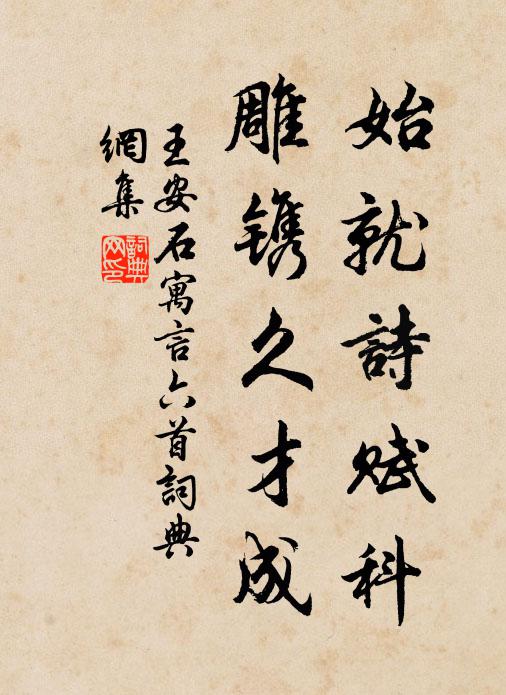 始就詩赋科
雕镌久才成
王安石寓言六首詞典
網集
詞典
网印